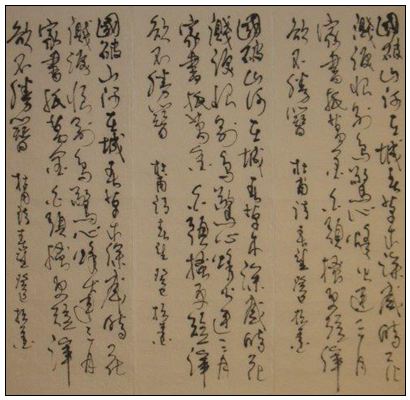 國破山河在城春草木深感時花
濺淚恨別鳥驚心烽火連三月
家書抵萬金白頭搔更短渾
欲不勝簪 杜甫詩春望
國破山河在城春草木深感時花
濺淚恨別鳥驚心烽火連三月
家書抵萬金白頭搔更短渾
欲不勝簪 杜甫詩春望
國破山河在城春草木深感時花
濺淚恨別鳥驚心烽火連三月
家書抵萬金白頭搔更短渾
欲不勝簪 杜甫詩春望